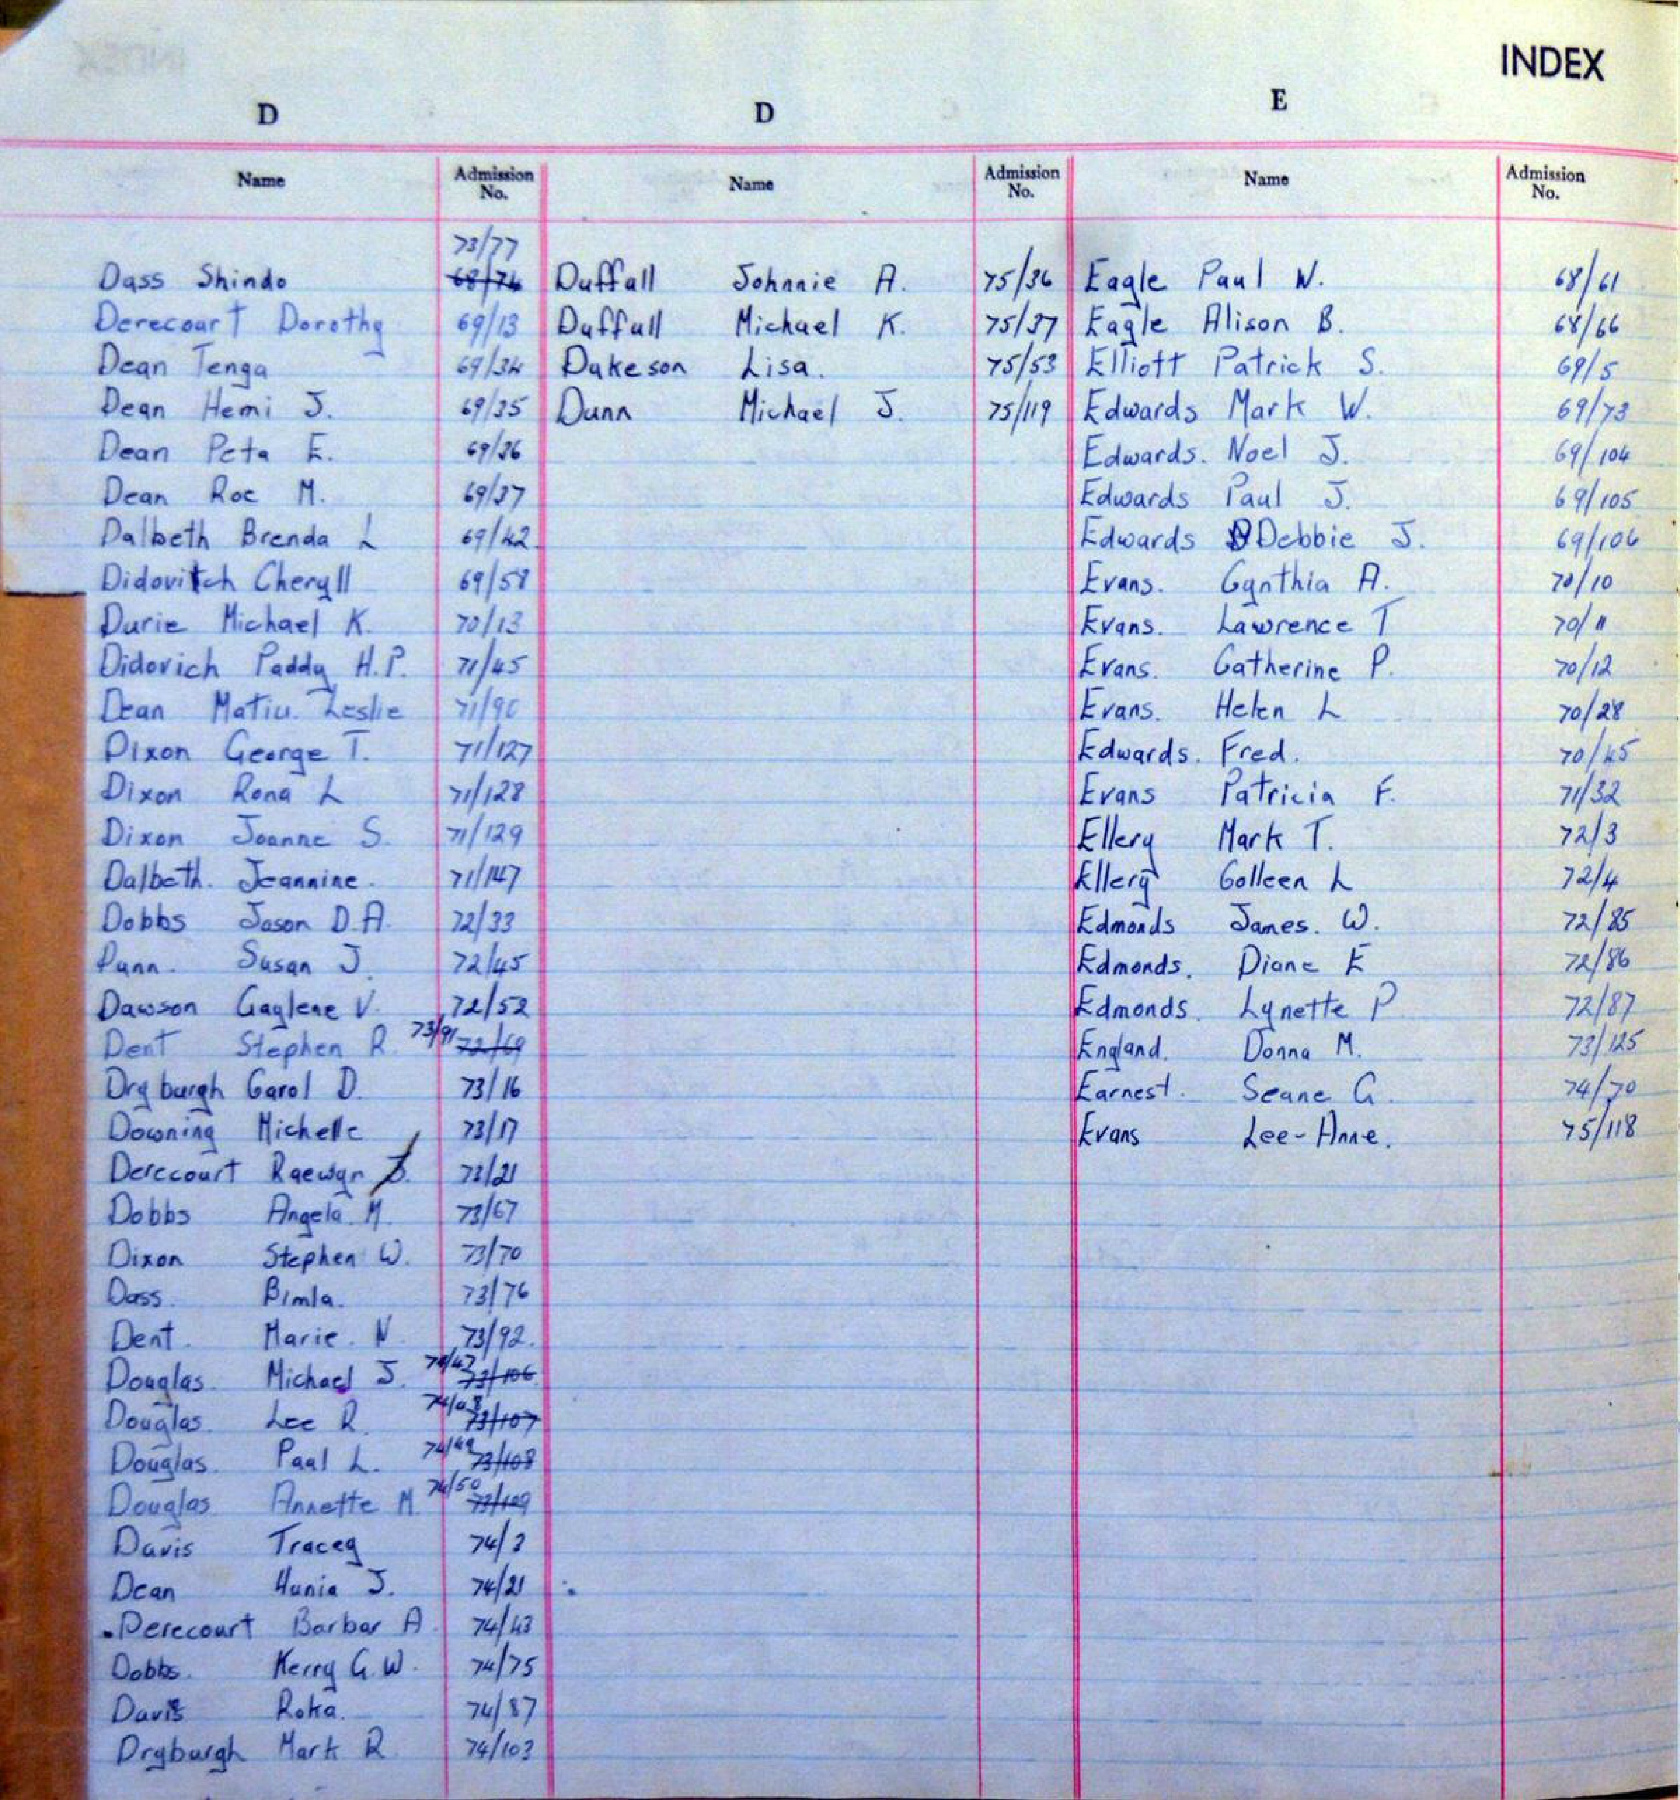 INDEX
D
Name Admission No.
73/77
Dass Shindo 68/74
Derecourt Dorothy 69/13
Dean Tenga 69/34
Dean Hemi J. 69/35
Dean Peta E. 69/36
Dean Roe M. 69/37
Dalbeth Brenda L 69/42
Didovitch Cheryll 69/58
Durie Michael K. 70/13
Didovich Paddy H.P. 71/45
Dean Matiu Leslie 71/90
Dixon George T. 71/127
Dixon Rona L 71/128
Dixon Joanne S. 71/129
Dalbeth. Jeannine. 71/147
Dobbs Jason D.A. 72/33
Dunn. Susan J. 72/45
Dawson Gaylene V. 72/52
Dent Stephen R. 73/91 72/69
Dryburgh Carol D. 73/16
Downing Michelle 73/17
Derecourt Raewyn J. 73/21
Dobbs Angela M. 73/67
Dixon Stephen W. 73/70
Dass. Bimla. 73/76
Dent. Marie. N. 73/92.
Douglas. Michael J. 74/47 73/106
Douglas. Lee R. 74/48 73/107
Douglas. Paul L. 74/49 73/108
Douglas Annette M. 74/50 73/109
Davis Tracey 74/3
Dean Hunia J. 74/21
Derecourt Barbar A. 74/43
Dobbs. Kerry G.W. 74/75
Davis Roka. 74/87
Dryburgh Mark R 74/103
D
Name Admission No.
Duffall Johnnie A. 75/36
Duffull Michael K. 75/37
Dukeson Lisa. 75/53
Dunn Michael J. 75/119
E
Name Admission No.
Eagle Paul W. 68/61
Eagle Alison B. 68/66
Elliott Patrick S. 69/5
Edwards Mark W. 69/73
Edwards. Noel J. 69/104
Edwards Paul J. 69/105
Edwards Debbie J. 69/106
Evans. Cynthia A. 70/10
Evans. Lawrence T 70/11
Evans. Catherine P. 70/12
Evans. Helen L 70/28
Edwards. Fred. 70/45
Evans Patricia F. 71/32
Ellery Mark T. 72/3
Ellery Colleen L 72/4
Edmonds James. W. 72/85
Edmonds. Diane E 72/86
Edmonds. Lynette P 72/87
England. Donna M. 73/125
Earnest. Seane G. 74/70
Evans Lee-Anne. 75/118